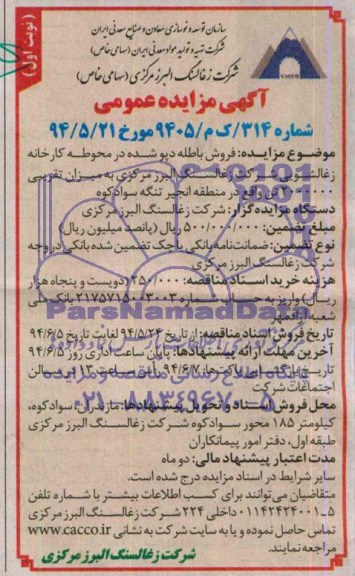 (نوبت اول)
سازمان توسعه و نوسازی معادن و صنایع معدنی ایران
شرکت تهیه و تولید مواد معدنی ایران (سهامی خاص)
شرکت زغالسنگ البرز مرکزی (سهامی خاص)
CACCO
آگهی مزایده عمومی
شماره ۳۱۴/ک م/۹۴۰۵ مورخ ۹۴/۵/۲۱
موضوع مزایده: فروش باطله دپو شده در محوطه کارخانه
زغالشویی شرکت زغالسنگ البرز مرکزی به میزان تقریبی
تن واقع در منطقه انجیر تنگه سوادکوه
دستگاه مزایده گزار: شرکت زغالسنگ البرز مرکزی
مبلغ تضمین: ۵۰۰/۰۰۰/۰۰۰ ریال (پانصد میلیون ریال)
نوع تضمین: ضمانت‌نامه بانکی یا چک تضمین شده بانکی در وجه
شرکت زغالسنگ البرز مرکزی
هزینه خرید اسناد مناقصه: ۲۵۰/۰۰۰ (دویست و پنجاه هزار
ریال) واریز به حساب شماره ۲۱۷۵۷۱۵۰۰۳۰۰۳ بانک ملی
شعبه آزادمهر
تاریخ فروش اسناد مناقصه: از تاریخ ۹۴/۵/۲۴ لغایت تاریخ ۹۴/۶/۵
آخرین مهلت ارائه پیشنهادها: پایان ساعت اداری روز ۹۴/۶/۵
تاریخ بازگشایی پاکت‌ها: ۹۴/۶/۷ راس ساعت ۱۳ در سالن
اجتماعات شرکت
محل فروش اسناد و تحویل پیشنهادها: مازندران، سوادکوه،
کیلومتر ۱۸۵ محور سوادکوه شرکت زغالسنگ البرز مرکزی
طبقه اول، دفتر امور پیمانکاران
مدت اعتبار پیشنهاد مالی: دو ماه
سایر شرایط در اسناد مزایده درج شده است.
متقاضیان می‌توانند برای کسب اطلاعات بیشتر با شماره تلفن
۵-۰۱۱۴۲۴۲۴۰۰۱ داخلی ۲۲۴ شرکت زغالسنگ البرز مرکزی
تماس حاصل نموده و یا به سایت شرکت به نشانی www.cacco.ir
مراجعه نمایند.
شرکت زغالسنگ البرز مرکزی
ParsNamadData
پایگاه اطلاع رسانی مناقصه و مزایده
۰۲۱-۸۸۳۴۹۶۷۰-۵